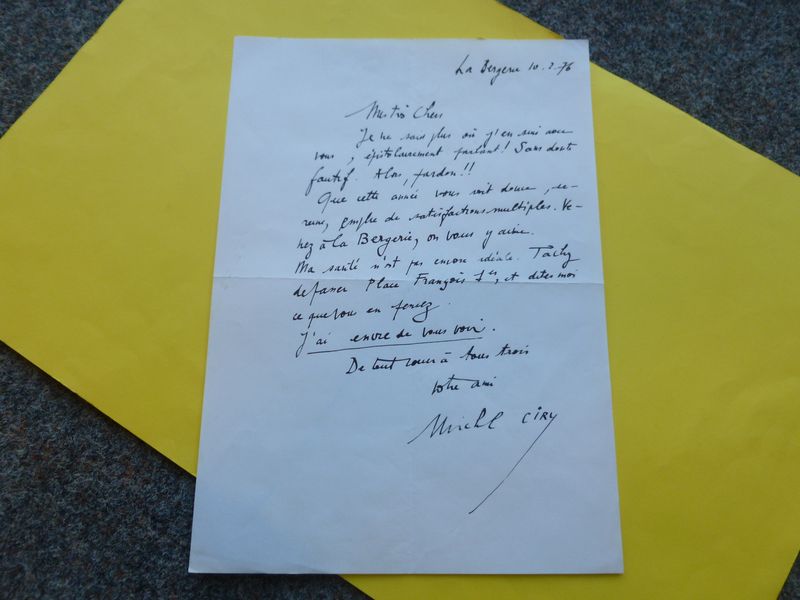 La Bergerie 10.2.76
Mes très Chers
Je ne sais plus où j'en suis avec
vous, épistolairement parlant! Sans doute
fautif. Alors, pardon!!
Que cette année vous soit douce, se-
reine, emplie de satisfactions multiples. Ve-
nez à la Bergerie, on vous y aime.
Ma santé n'est pas encore idéale. Tachez
de passer Place François 1er, et dites moi
ce que vous en pensez.
J'ai envie de vous voir.
De tout coeur à tous trois
votre ami
Michel CIRY